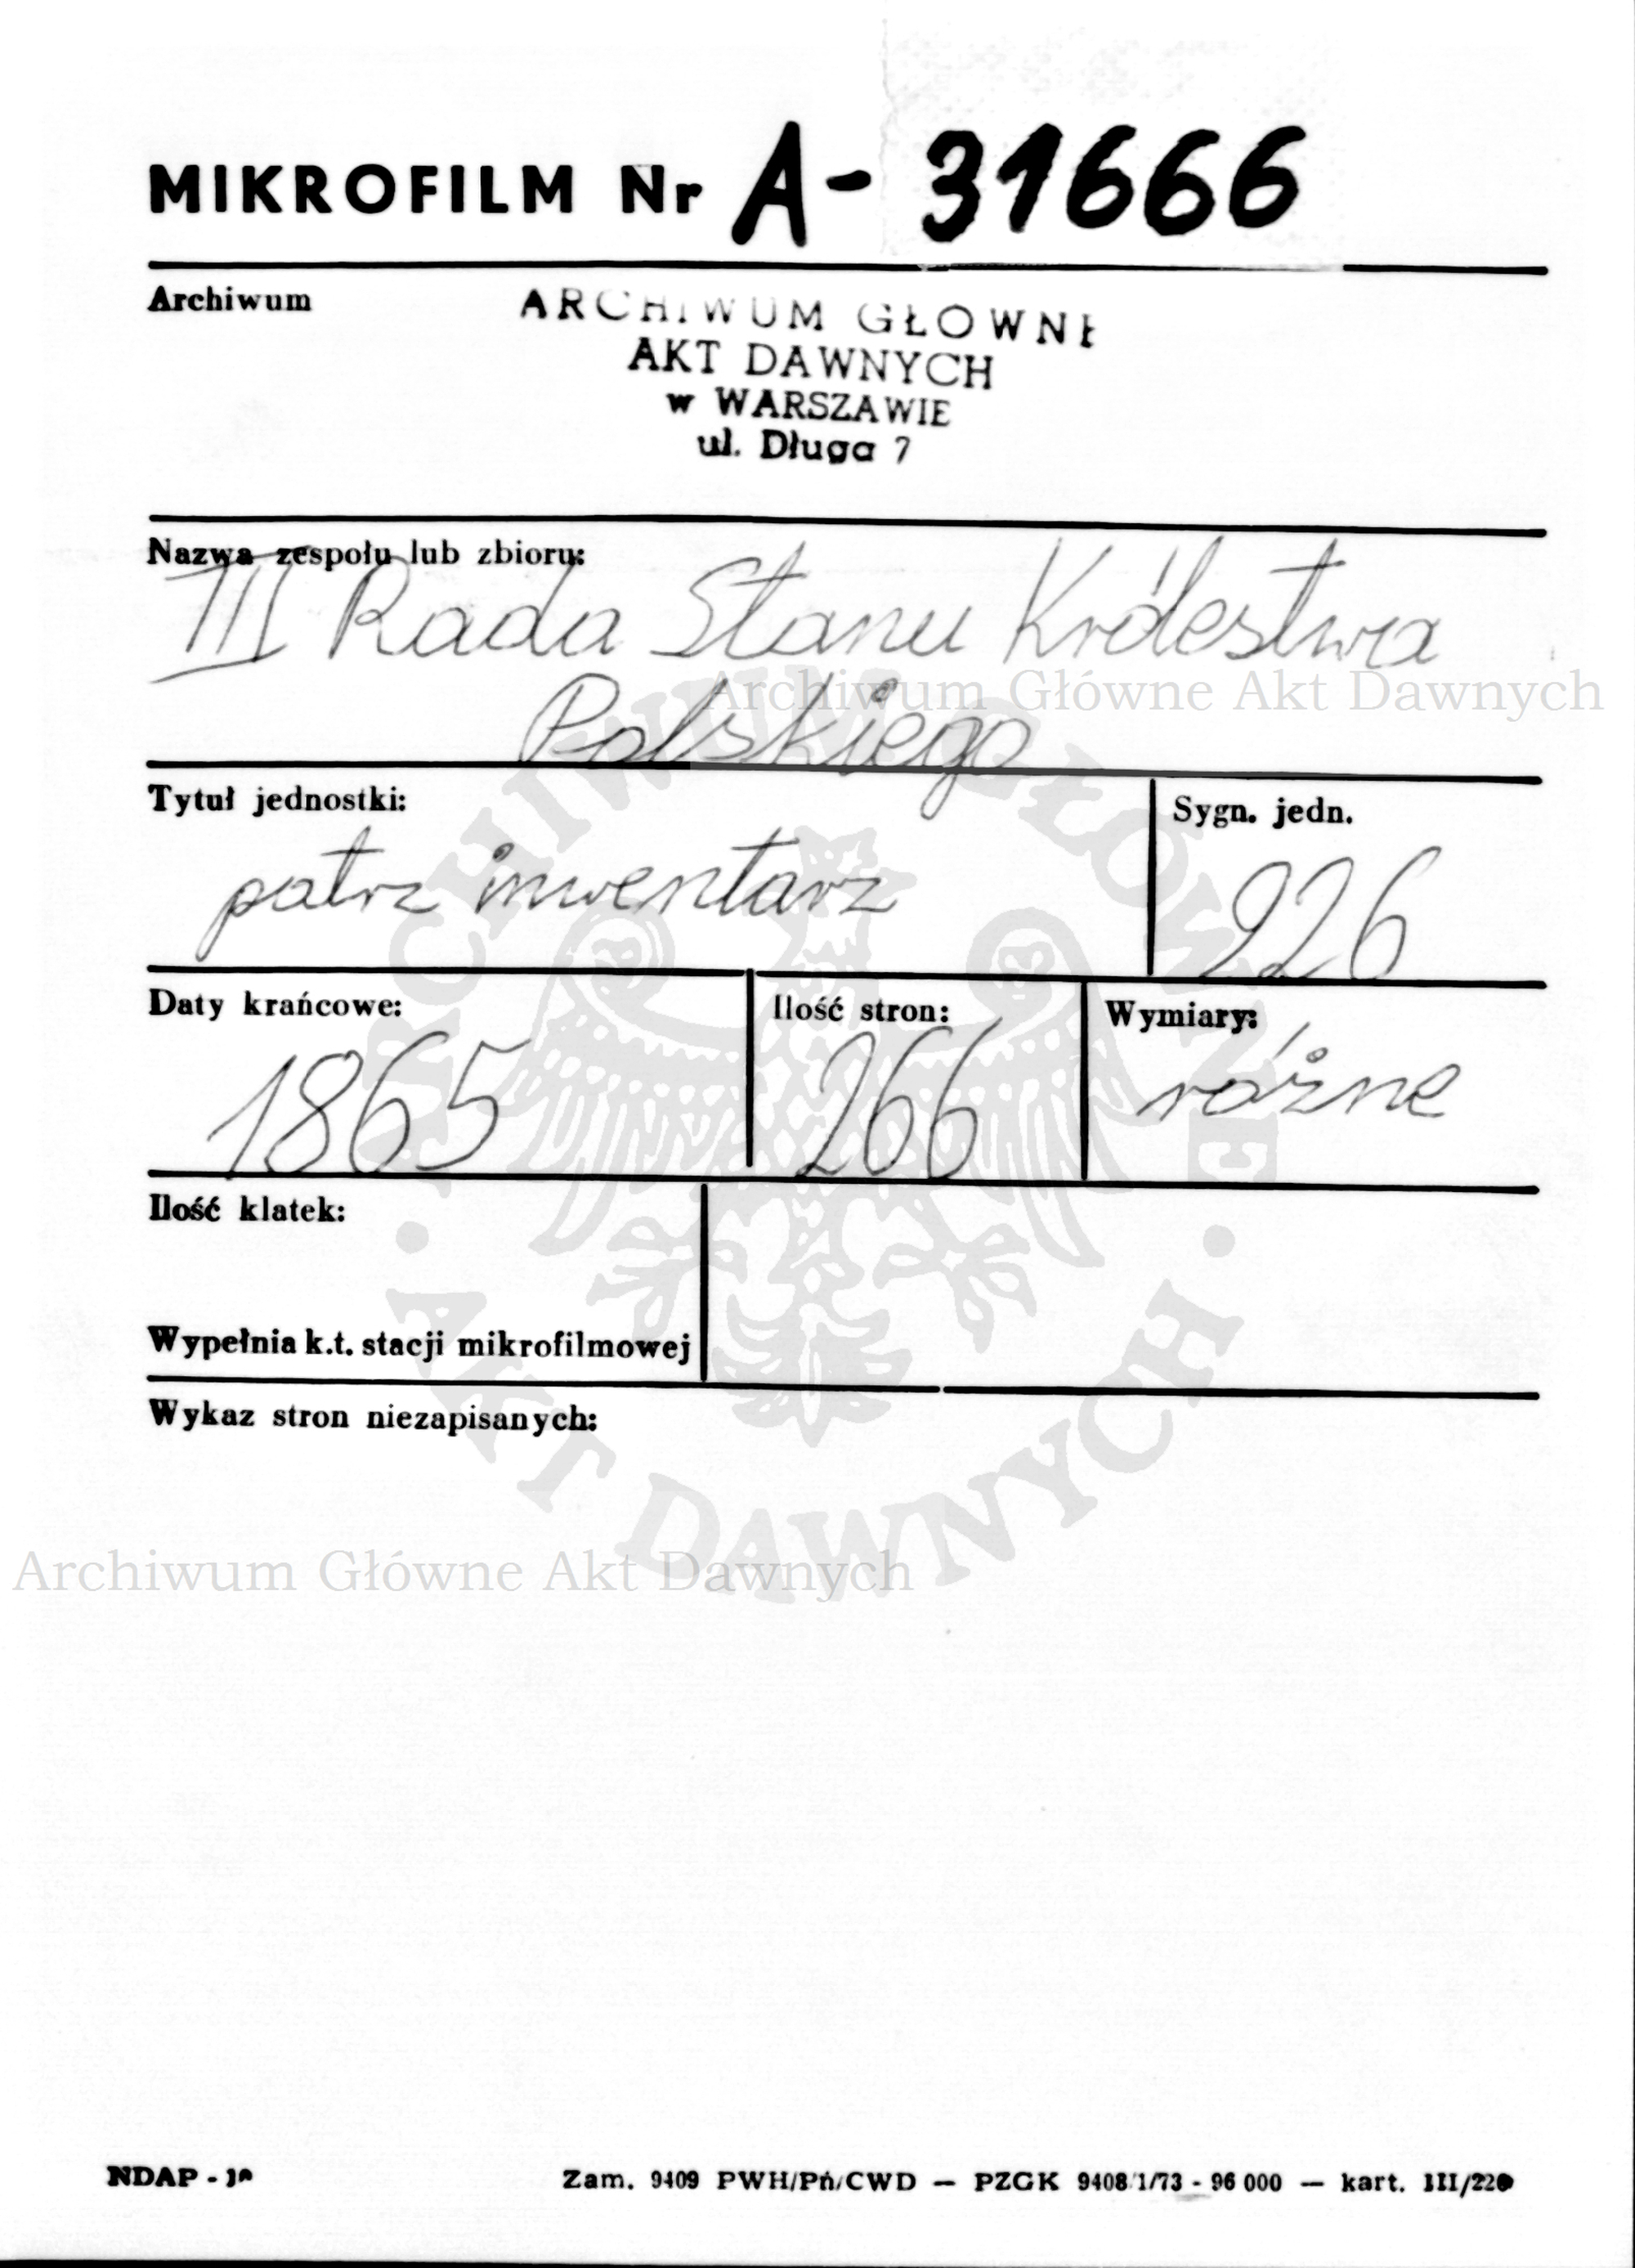 MIKROFILM Nr A-31666
Archiwum
ARCHIWUM GŁOWNE
AKT DAWNYCH
w WARSZAWIE
ul. Długa 7
Nazwa zespołu lub zbioru:
III Rada Stanu Królestwa
Polskiego
Archiwum Główne Akt Dawnych
Tytuł jednostki:
patrz inwentarz
Sygn. jedn.
226
Daty krańcowe:
1865
Ilość stron:
266
Wymiary:
różne
Ilość klatek:
Wypełnia k.t. stacji mikrofilmowej
Wykaz stron niezapisanych:
ARCHIWUM GŁÓWNE
AKT DAWNYCH
Archiwum Główne Akt Dawnych
NDAP -
Zam. 9409 PWH/Pń/CWD — PZGK 9408/1/73 - 96 000 — kart. III/220